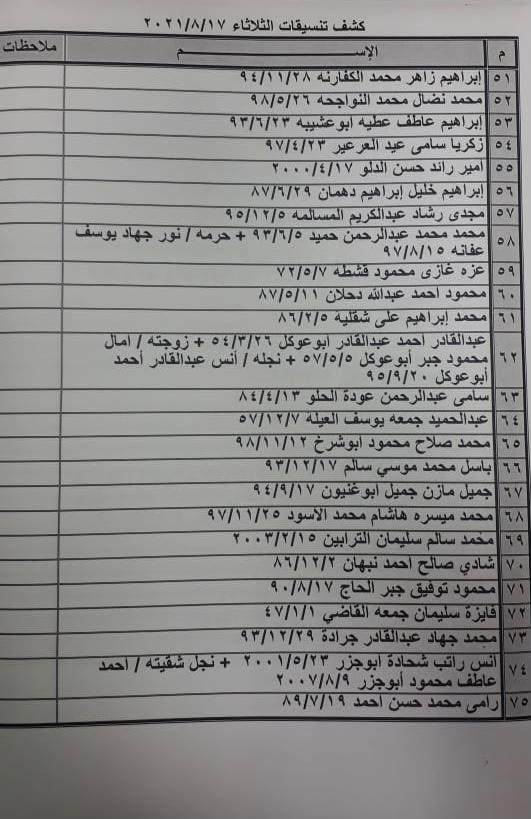 كشف تنسيقات الثلاثاء ٢٠٢١/٨/١٧
م الإســـــــــم ملاحظات
٥١ إبراهيم زاهر محمد الكفارنه ٩٤/١١/٢٨
٥٢ محمد نضال محمد النواجحه ٩٨/٥/٢٦
٥٣ إبراهيم عاطف عطيه ابوعشيبه ٩٣/٦/٢٣
٥٤ زكريا سامى عيد العرعير ٩٧/٤/٢٣
٥٥ امير رائد حسن الدلو ٢٠٠٠/٤/١٧
٥٦ إبراهيم خليل إبراهيم دهمان ٨٧/٦/٢٩
٥٧ مجدى رشاد عبدالكريم المسالمه ٩٥/١٢/٥
٥٨ محمد محمد عبدالرحمن حميد ٩٣/٦/٥ + حرمه / نور جهاد يوسف
عفانه ٩٧/٨/١٥
٥٩ عزه غازى محمود قشطه ٧٢/٥/٧
٦٠ محمود احمد عبدالله دحلان ٨٧/٥/١١
٦١ محمد إبراهيم على شقلية ٨٦/٢/٥
٦٢ عبدالقادر احمد عبدالقادر ابوعوكل ٥٤/٣/٢٦ + زوجته / امال
محمود جبر أبوعوكل ٥٧/٥/٥ + نجله / أنس عبدالقادر أحمد
أبوعوكل ٩٥/٩/٢٠
٦٣ سامى عبدالرحمن عودة الحلو ٨٤/٤/١٣
٦٤ عبدالحميد جمعه يوسف العيله ٥٧/١٢/٧
٦٥ محمد صلاح محمود ابوشرخ ٩٨/١١/١٢
٦٦ باسل محمد موسي سالم ٩٣/١٢/١٧
٦٧ جميل مازن جميل ابوغنيون ٩٤/٩/١٧
٦٨ محمد ميسره هاشام محمد الاسود ٩٧/١١/٢٥
٦٩ محمد سالم سليمان الترابين ٢٠٠٣/٢/١٥
٧٠ شادي صالح احمد نبهان ٨٦/١٢/٢
٧١ محمود توفيق جبر الحاج ٩٠/٨/١٧
٧٢ فايزة سليمان جمعه القاضي ٤٧/١/١
٧٣ محمد جهاد عبدالقادر جرادة ٩٣/١٢/٢٩
٧٤ انس راتب شحادة ابوجزر ٢٠٠١/٥/٢٣ + نجل شقيته / احمد
عاطف محمود أبوجزر ٢٠٠٧/٨/٩
٧٥ رامى محمد حسن احمد ٨٩/٧/١٩